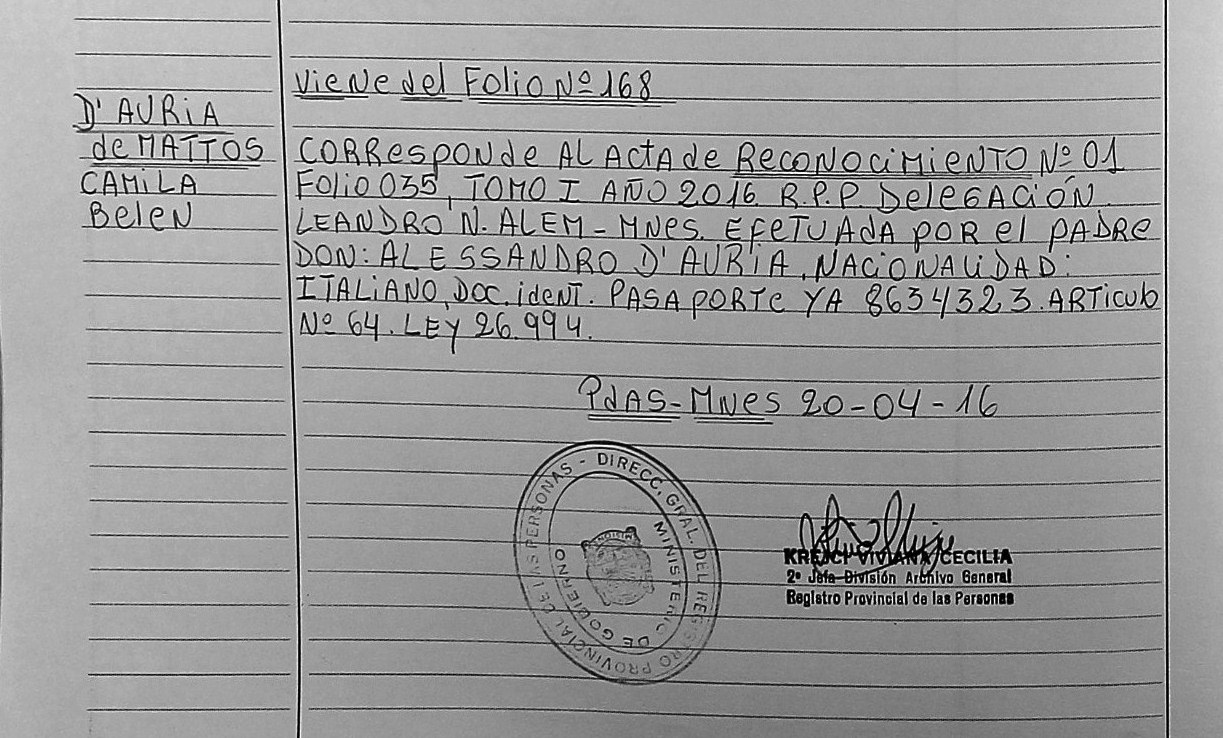 Viene del Folio Nº 168
D'AURIA
de MATTOS
CAMILA
Belen
CORResponde AL Acta de Reconocimiento Nº 01
Folio 035, TOMO I AÑO 2016. R.P.P. Delegación
LEANDRO N. ALEM - MNes. EFeTUAdA POR el PADRE
DON: ALESSANDRO D'AURIA, NACIONALIDAD:
ITALIANO, DOC. ident. PASAPORTE YA 8634323. ARTICULO
Nº 64. LEY 26.994.
PdAS-MNes 20-04-16
DIRECC. GRAL. DEL REGISTRO PROVINCIAL DE LAS PERSONAS -
MINISTERIO DE GOBIERNO
KREJCI VIVIANA CECILIA
2º Jefe División Archivo General
Registro Provincial de las Personas